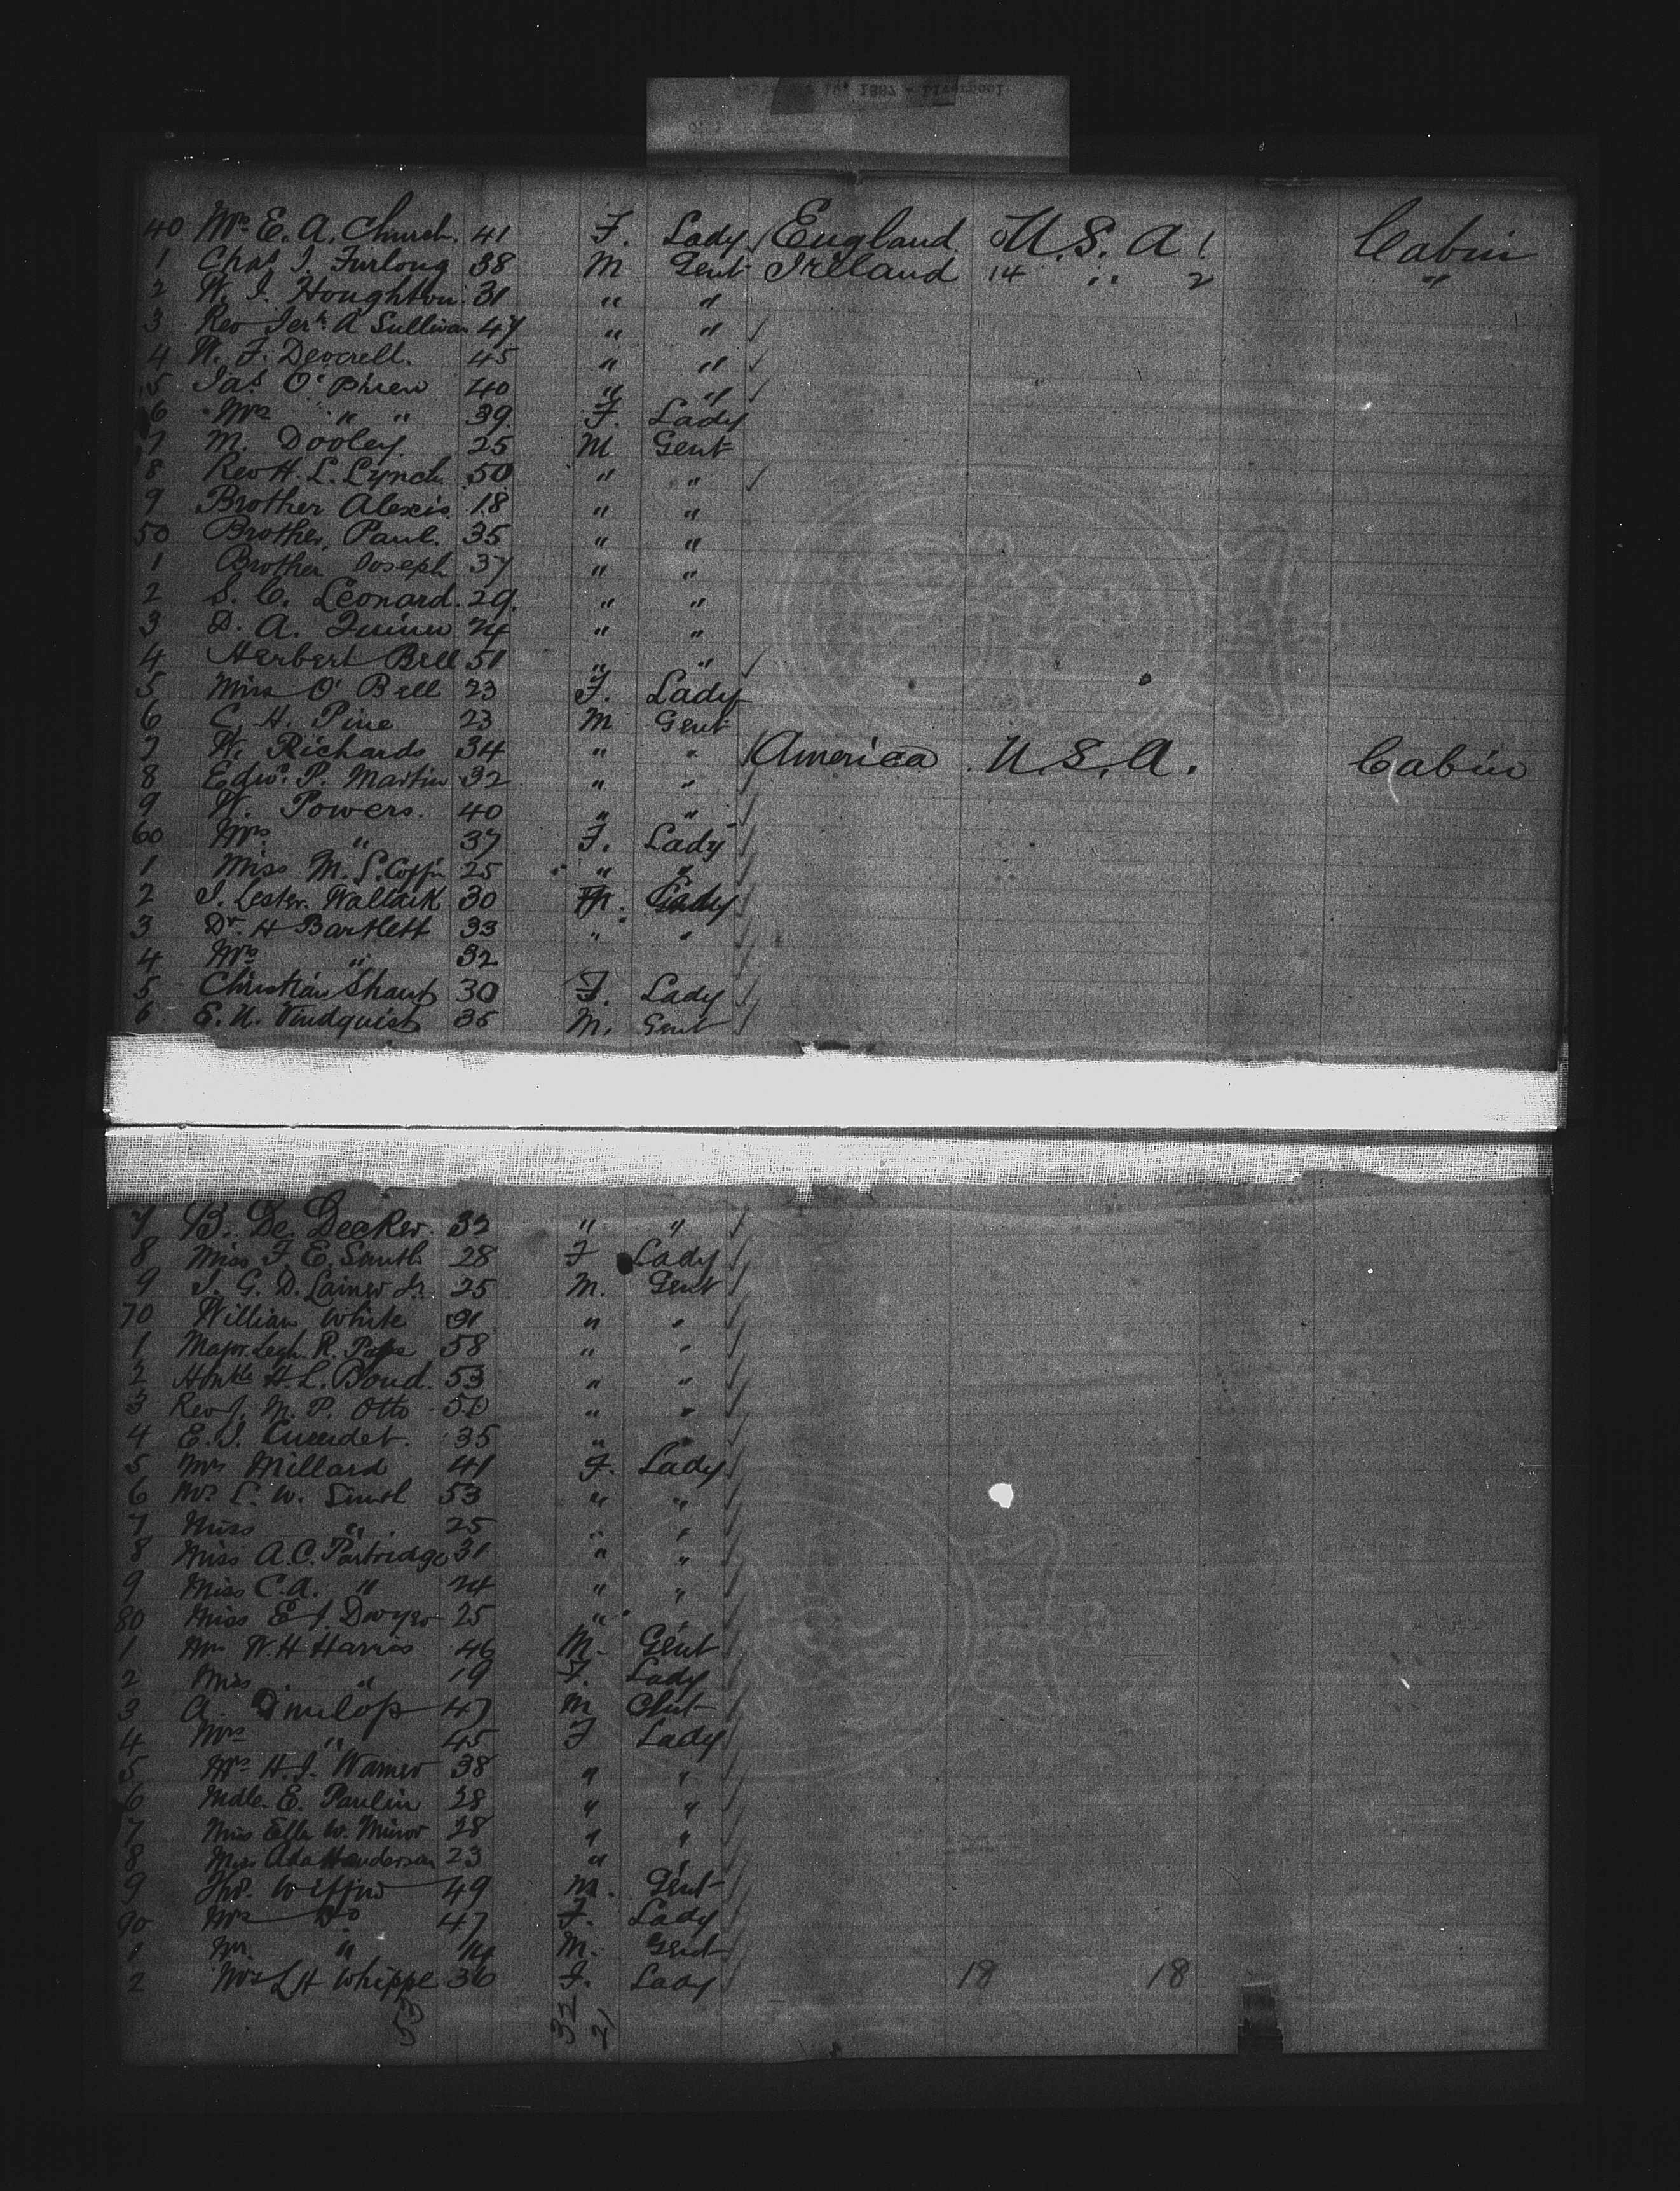 1887 - Liverpool
40 Mrs E. A. Church. 41 F. Lady England U. S. A. Cabin
1 Chas J. Furlong 38 M Gent Ireland 14 " 2 "
2 W. J. Houghton 31 " "
3 Rev Jerh A Sullivan 47 " "
4 W. F. Deverell. 45 " "
5 Jas O'Brien 40 " "
6 Mrs " " 39 F. Lady
7 M. Dooley 25 M Gent
8 Rev H. L. Lynch 50 " "
9 Brother Alexis 18 " "
50 Brother Paul. 35 " "
1 Brother Joseph 37 " "
2 S. C. Leonard. 29. " "
3 D. A. Quinn 24 " "
4 Herbert Bell 51 " "
5 Miss O' Bell 23 F. Lady
6 C. H. Pine 23 M Gent
7 W. Richards 34 " " America U. S. A. Cabin
8 Edwd. P. Martin 32 " "
9 W. Powers. 40 " "
60 Mrs " 37 F. Lady
1 Miss M. S. Coffin 25 " "
2 J. Lester. Wallack 30 M. Lady
3 Dr. H Bartlett 33 " "
4 Mrs " 32
5 Christian Shaut 30 F. Lady
6 E. U. Vindquist 35 M. Gent
7 B. De Decker. 32 " "
8 Miss F. E. Smith 28 F Lady
9 J. G. D. Lainer Jr. 25 M. Gent
70 William White 31 " "
1 Major. Legh. R. Page 58 " "
2 Honble H. L. Bond. 53 " "
3 Rev J. M. P. Otto 50 " "
4 E. J. 35 " "
5 Mrs Millard 41 F. Lady
6 Mrs L. W. Smith 53 " "
7 Miss " 25 " "
8 Miss A. C. Partridge 31 " "
9 Miss C. A. " 24 " "
80 Miss E J. Dwyer 25 " "
1 Mr W. H Harris 46 M. Gent
2 Miss " 19 F. Lady
3 A. Dunlop 47 M Gent
4 Mrs " 45 F Lady
5 Mrs H. J. Warner 38 " "
6 Mdle E. Paulin 28 " "
7 Miss Ella W. Minor 28 " "
8 Miss Ada Henderson 23 " "
9 49 M. Gent
90 Mrs Do 47 F. Lady
1 Mr. " 14 M. Gent
2 Mrs L H Whipple 36 F. Lady 18 18
53 32 21